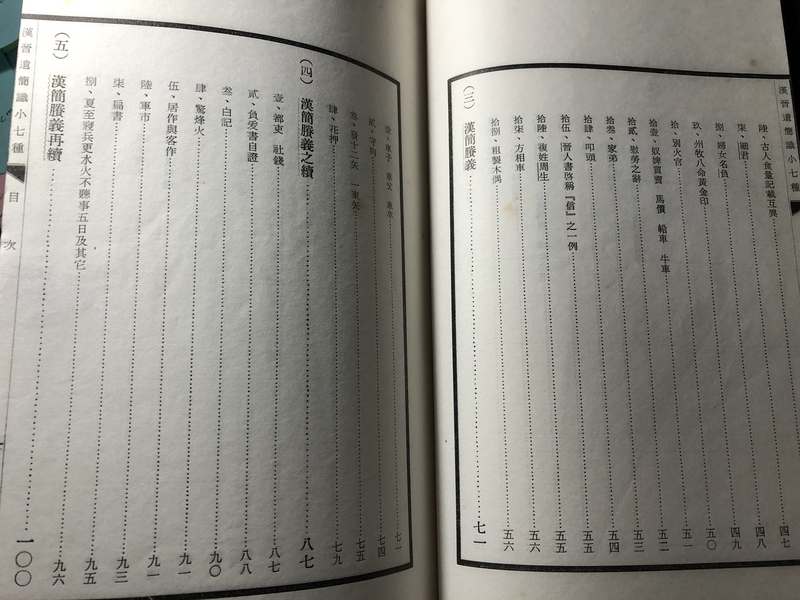 漢晉遺簡識小七種
陸、古人食量記載互異 四七
柒、細君 四八
捌、婦女名負 四九
玖、州牧八命黃金印 五〇
拾、別火官 五一
拾壹、奴婢買賣 馬價 軺車 牛車 五二
拾貳、慰勞之辭 五三
拾叁、家弟 五四
拾肆、叩頭 五五
拾伍、晉人書啓稱『信』之一例 五五
拾陸、復姓周生 五六
拾柒、方相車 五六
拾捌、粗製木偶 五六
(三) 漢簡賸義 七一
壹、車子 車父 車卒 七一
貳、守狗 七四
叁、發十二矢 一東矢 七五
肆、花押 七九
(四) 漢簡賸義之續 八七
壹、都吏 社錢 八七
貳、負爰書自證 八八
叁、白記 九〇
肆、驚烽火 九一
伍、居作與客作 九一
陸、軍市 九一
柒、扁書 九三
捌、夏至寢兵更水火不聽事五日及其它 九五
(五) 漢簡賸義再續 一〇〇
漢晉遺簡識小七種 目次